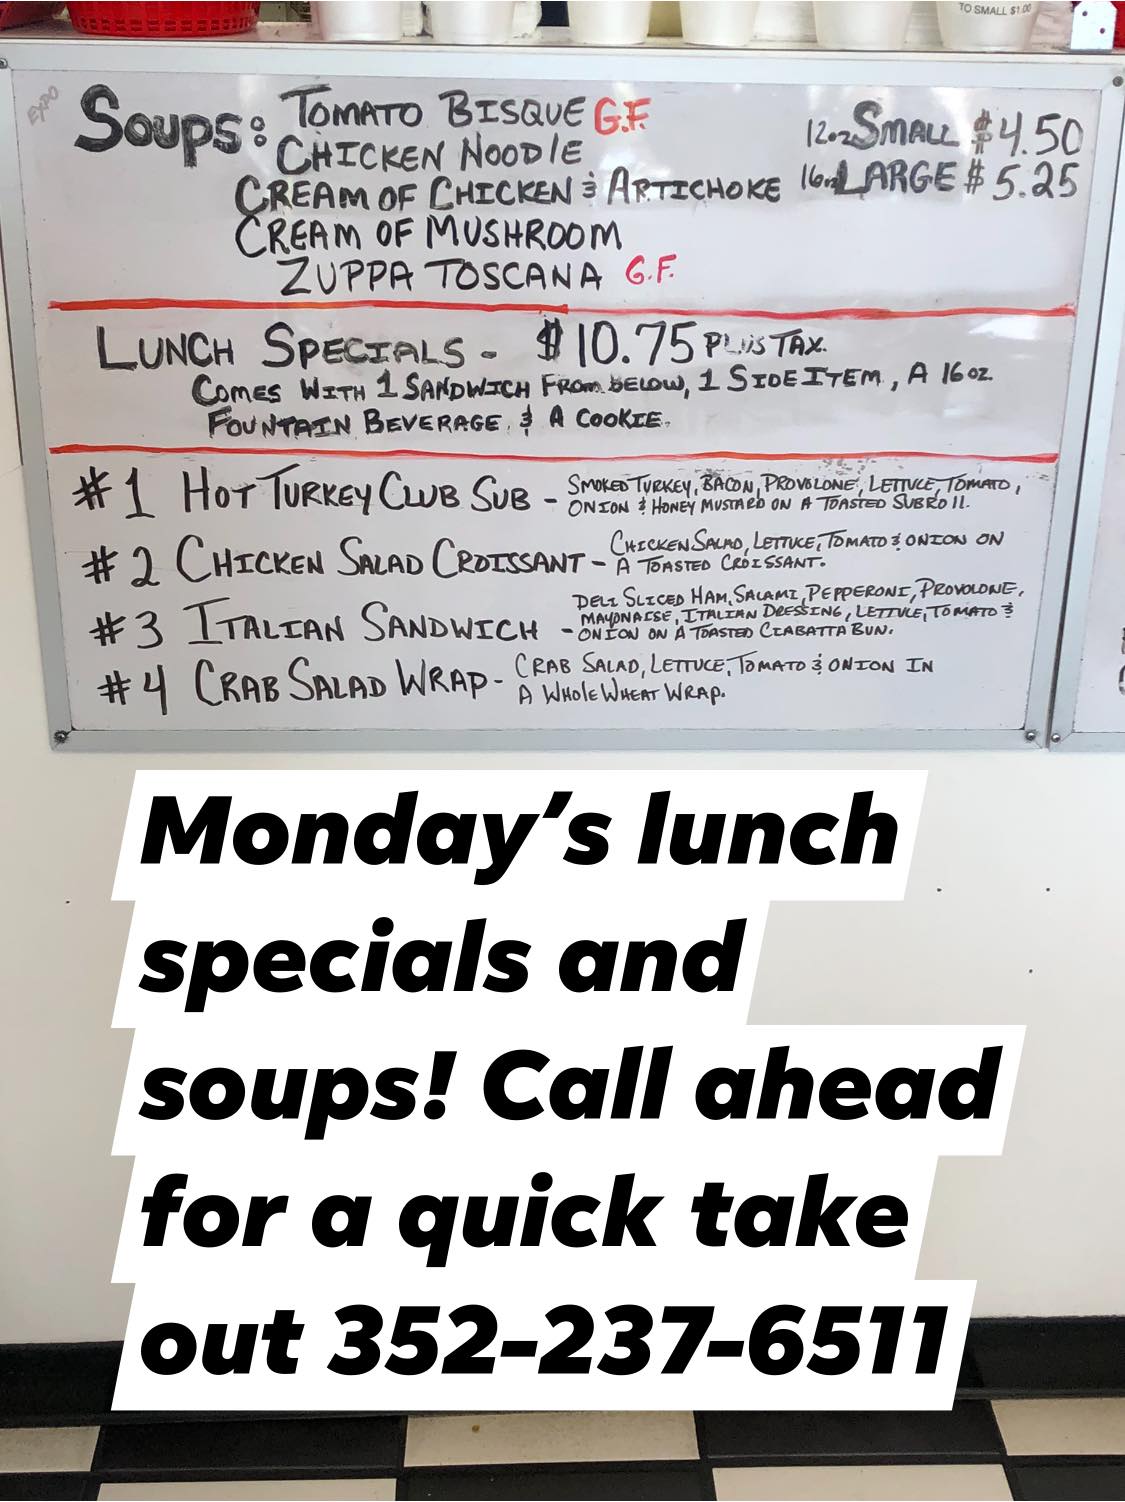 TO SMALL $1.00
EXPO
Soups: TOMATO BISQUE G.F. 12oz SMALL $4.50
CHICKEN NOODlE 16oz LARGE $5.25
CREAM OF CHICKEN & ARTICHOKE
CREAM OF MUSHROOM
ZUPPA TOSCANA G.F.
LUNCH SPECIALS - $10.75 PLUS TAX.
COMES WITH 1 SANDWICH FROM BELOW, 1 SIDE ITEM, A 16oz
FOUNTAIN BEVERAGE, & A COOKIE.
#1 HOT TURKEY CLUB SUB - SMOKED TURKEY, BACON, PROVOLONE, LETTUCE, TOMATO,
ONION & HONEY MUSTARD ON A TOASTED SUB ROll.
#2 CHICKEN SALAD CROISSANT - CHICKEN SALAD, LETTUCE, TOMATO & ONION ON
A TOASTED CROISSANT.
#3 ITALIAN SANDWICH - DELI SLICED HAM, SALAMI, PEPPERONI, PROVOLONE,
MAYONAISE, ITALIAN DRESSING, LETTUCE, TOMATO &
ONION ON A TOASTED CIABATTA BUN.
#4 CRAB SALAD WRAP - CRAB SALAD, LETTUCE, TOMATO & ONION IN
A WHOlE WHEAT WRAP.
Monday's lunch
specials and
soups! Call ahead
for a quick take
out 352-237-6511